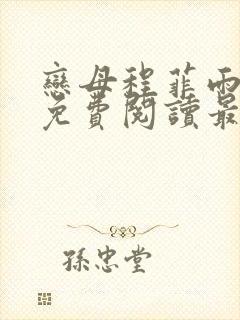 戀母程菲雨
免費閱讀最
孫忠堂